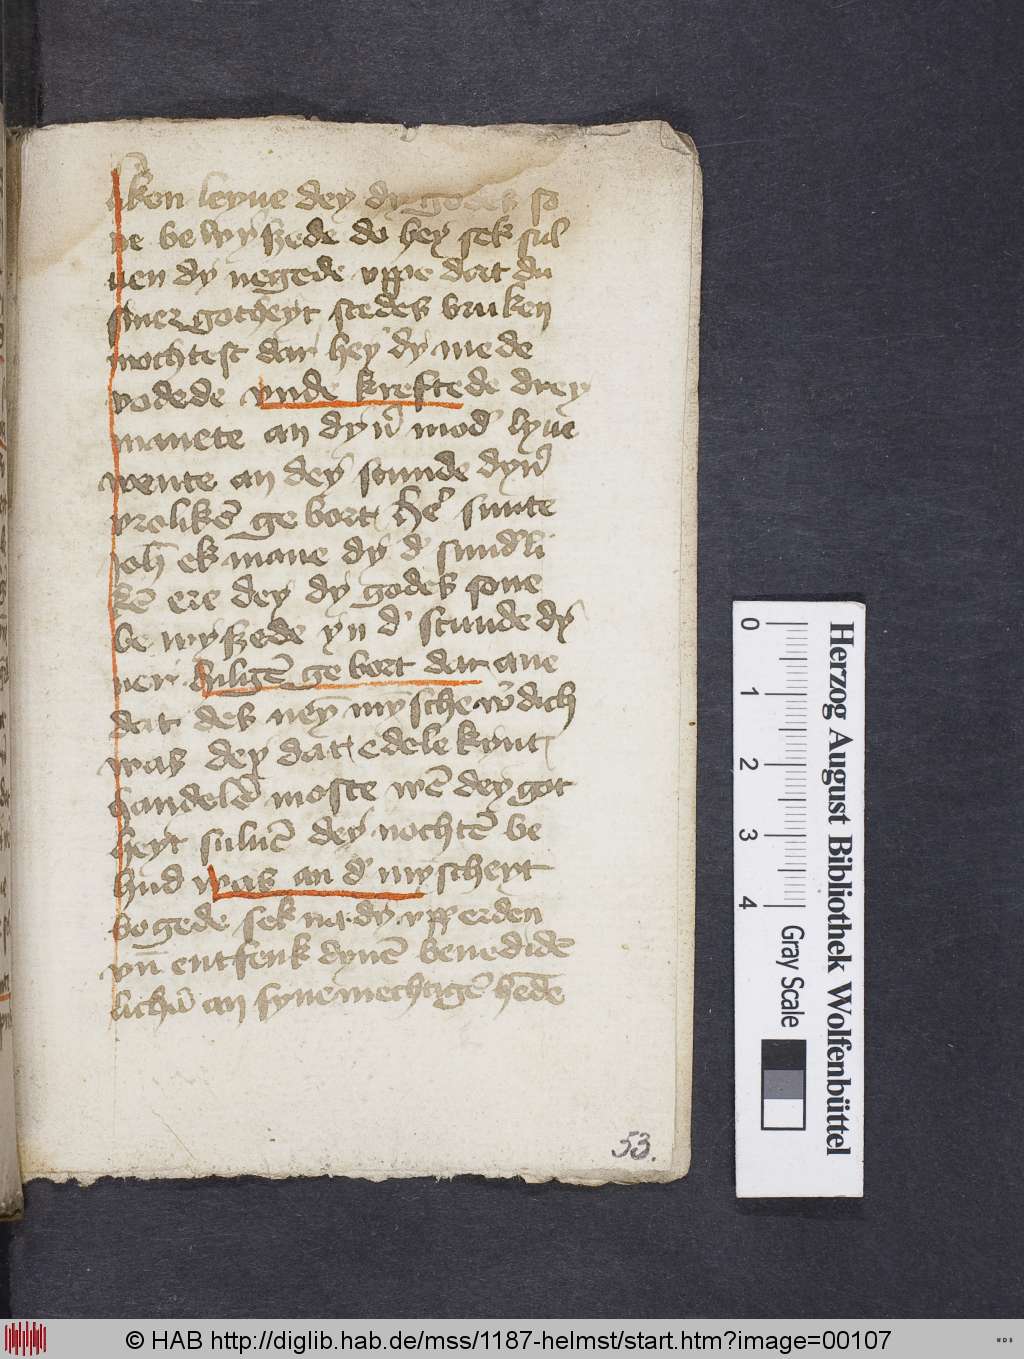 liken leyue dey dy godes so
ne bewyszede do hey sek sul
uen dy negede vppe dat du
siner gotheyt stedes bruken
mochtest dar hey dy mede
vodede vnde kreftede drey
manete an dyn̄ mod' lyue
wente an dey stunde dyn̄
vrolikē gebort he' sunte
joh̄ ek mane dy d' sund'li
kē ere dey dy godes sone
bewyszede yn d' stunde dy
ner hiligē gebort dar ane
dat des neȳ mȳsche w'dich
was dey dat edele kynt
handelē moste wē dey got
heyt suluē dey nochtē be
hud was an d' mȳscheyt
bogede sek na dy vpp erden
vn̄ entfenk dynē benedidē
lichā an syne mechtigē hēde
53.
0 1 2 3 4
Gray Scale
Herzog August Bibliothek Wolfenbüttel
© HAB http://diglib.hab.de/mss/1187-helmst/start.htm?image=00107
WDB